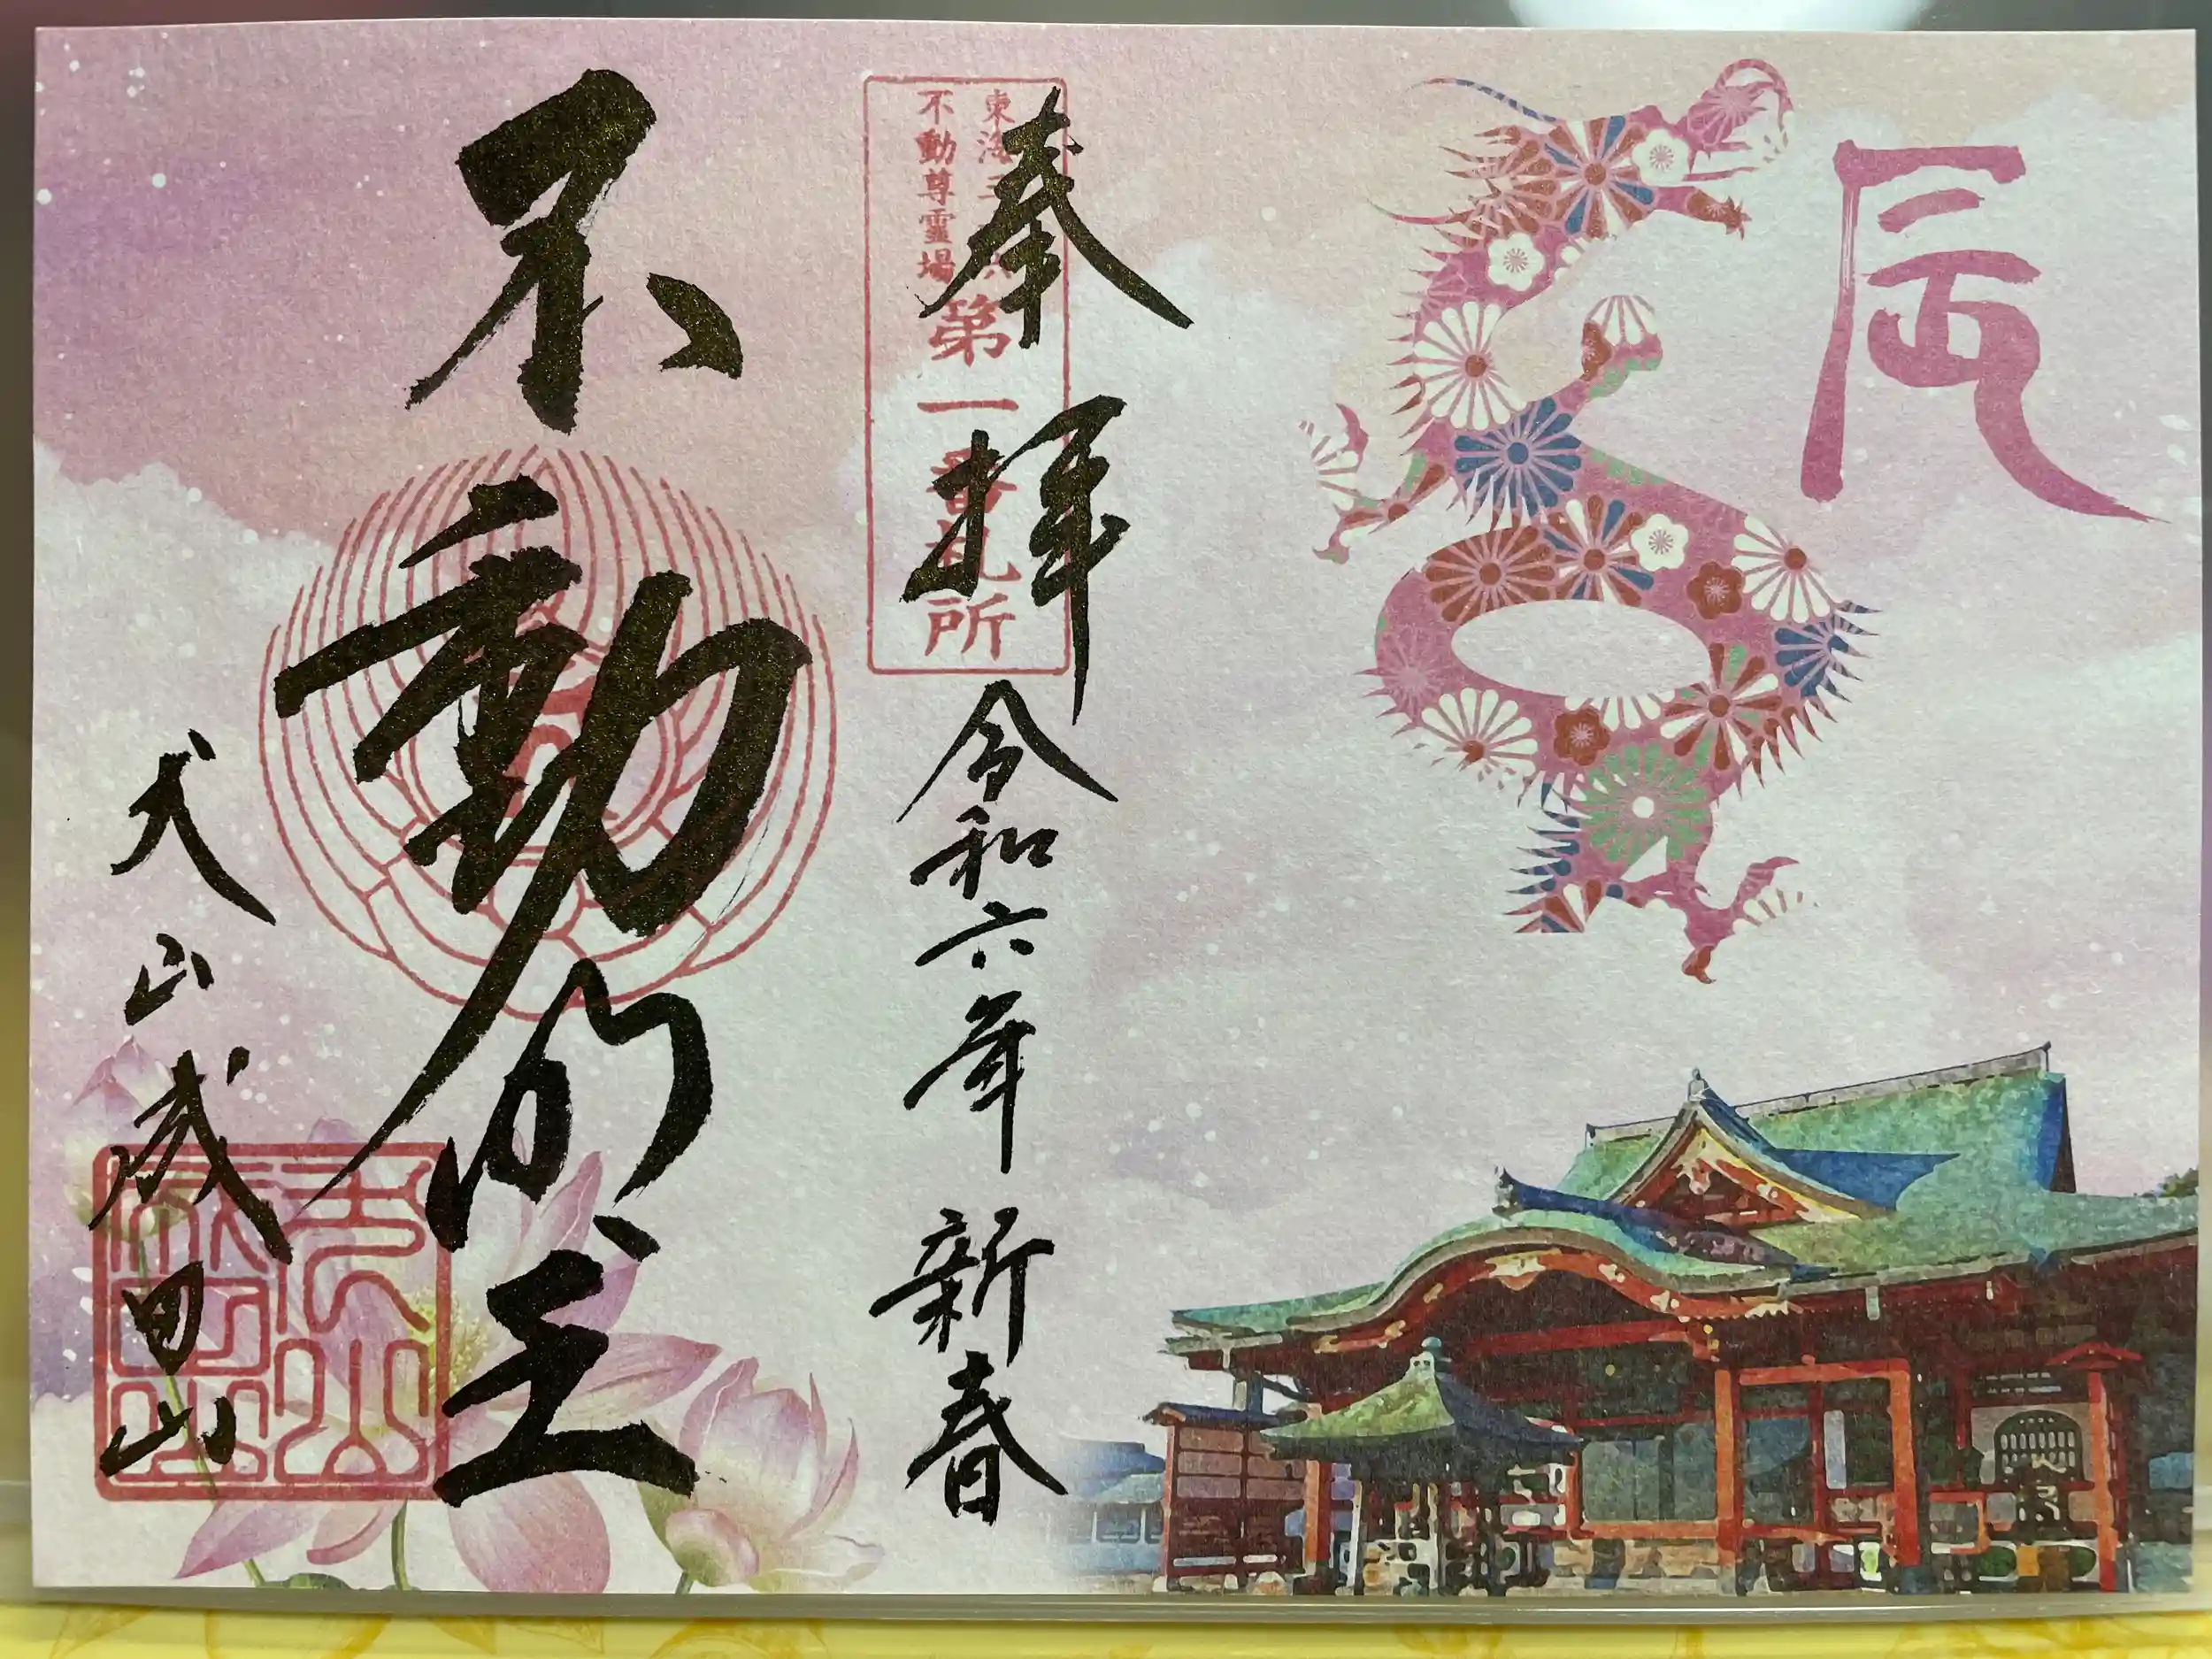 辰
奉拝
令和六年 新春
東海三十六
不動尊霊場
第一番札所
不動明王
犬山成田山